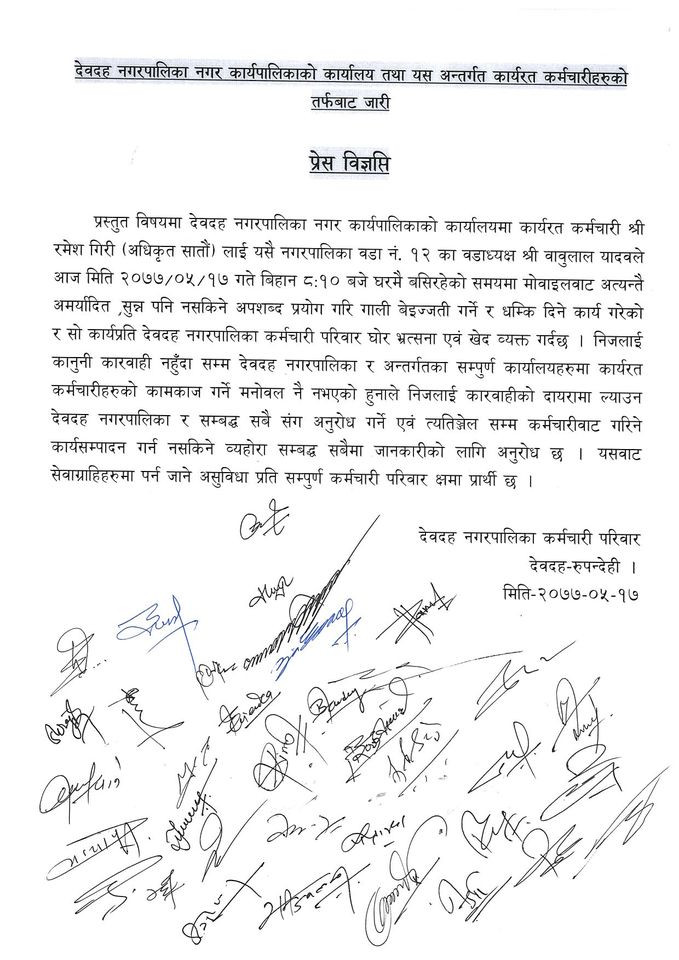 देवदह नगरपालिका नगर कार्यपालिकाको कार्यालय तथा यस अन्तर्गत कार्यरत कर्मचारीहरुको
तर्फबाट जारी
प्रेस विज्ञप्ति
प्रस्तुत विषयमा देवदह नगरपालिका नगर कार्यपालिकाको कार्यालयमा कार्यरत कर्मचारी श्री
रमेश गिरी (अधिकृत सातौं) लाई यसै नगरपालिका वडा नं. १२ का वडाध्यक्ष श्री वावुलाल यादवले
आज मिति २०७७/०५/१७ गते बिहान ८:१० बजे घरमै बसिरहेको समयमा मोवाइलबाट अत्यन्तै
अमर्यादित ,सुन्न पनि नसकिने अपशब्द प्रयोग गरि गाली बेइज्जती गर्ने र धम्कि दिने कार्य गरेको
र सो कार्यप्रति देवदह नगरपालिका कर्मचारी परिवार घोर भ्रत्सना एवं खेद व्यक्त गर्दछ । निजलाई
कानुनी कारवाही नहुँदा सम्म देवदह नगरपालिका र अन्तर्गतका सम्पुर्ण कार्यालयहरुमा कार्यरत
कर्मचारीहरुको कामकाज गर्ने मनोवल नै नभएको हुनाले निजलाई कारवाहीको दायरामा ल्याउन
देवदह नगरपालिका र सम्बद्ध सबै संग अनुरोध गर्ने एवं त्यतिञ्जेल सम्म कर्मचारीवाट गरिने
कार्यसम्पादन गर्न नसकिने व्यहोरा सम्बद्ध सबैमा जानकारीको लागि अनुरोध छ । यसवाट
सेवाग्राहिहरुमा पर्न जाने असुविधा प्रति सम्पुर्ण कर्मचारी परिवार क्षमा प्रार्थी छ ।
देवदह नगरपालिका कर्मचारी परिवार
देवदह-रुपन्देही ।
मिति-२०७७-०५-१७